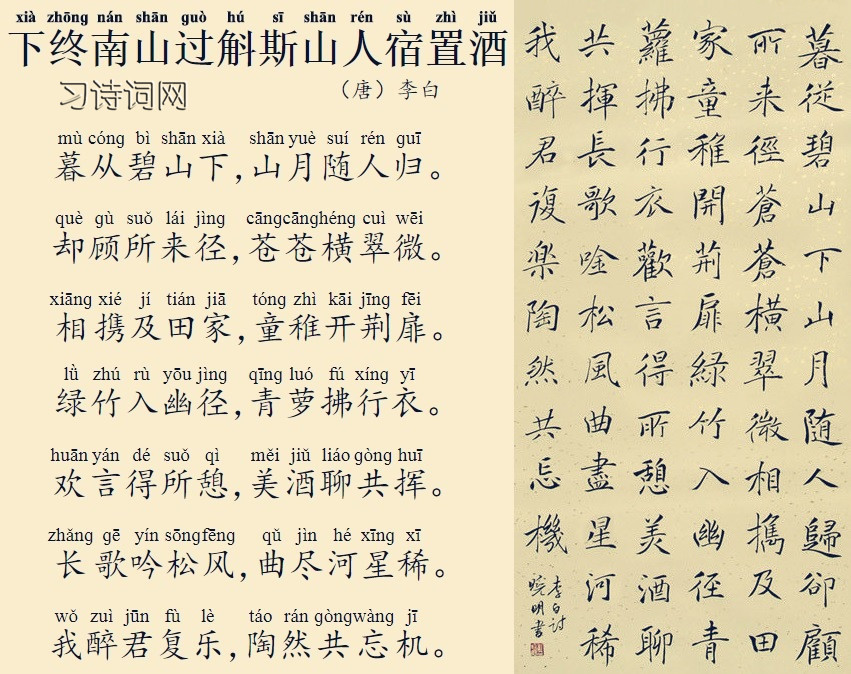 xià zhōng nán shān guò hú sī shān rén sù zhì jiǔ
下终南山过斛斯山人宿置酒
习诗词网
（唐）李白
mù cóng bì shān xià shān yuè suí rén guī
暮从碧山下,山月随人归。
què gù suǒ lái jìng cāngcānghéng cuì wēi
却顾所来径,苍苍横翠微。
xiāng xié jí tián jiā tóng zhì kāi jīng fēi
相携及田家,童稚开荆扉。
lǜ zhú rù yōu jìng qīng luó fú xíng yī
绿竹入幽径,青萝拂行衣。
huān yán dé suǒ qì měi jiǔ liáo gòng huī
欢言得所憩,美酒聊共挥。
zhǎng gē yín sōngfēng qǔ jìn hé xīng xī
长歌吟松风,曲尽河星稀。
wǒ zuì jūn fù lè táo rán gòngwàng jī
我醉君复乐,陶然共忘机。
暮從碧山下山月随人歸卻顧
所来徑蒼蒼橫翠微相攜及田
家童稚開荆扉綠竹入幽径青
蘿拂行衣歡言得所憩美酒聊
共揮長歌唫松風曲盡星河稀
我醉君復楽陶然共忘機
李白詩
曉明書